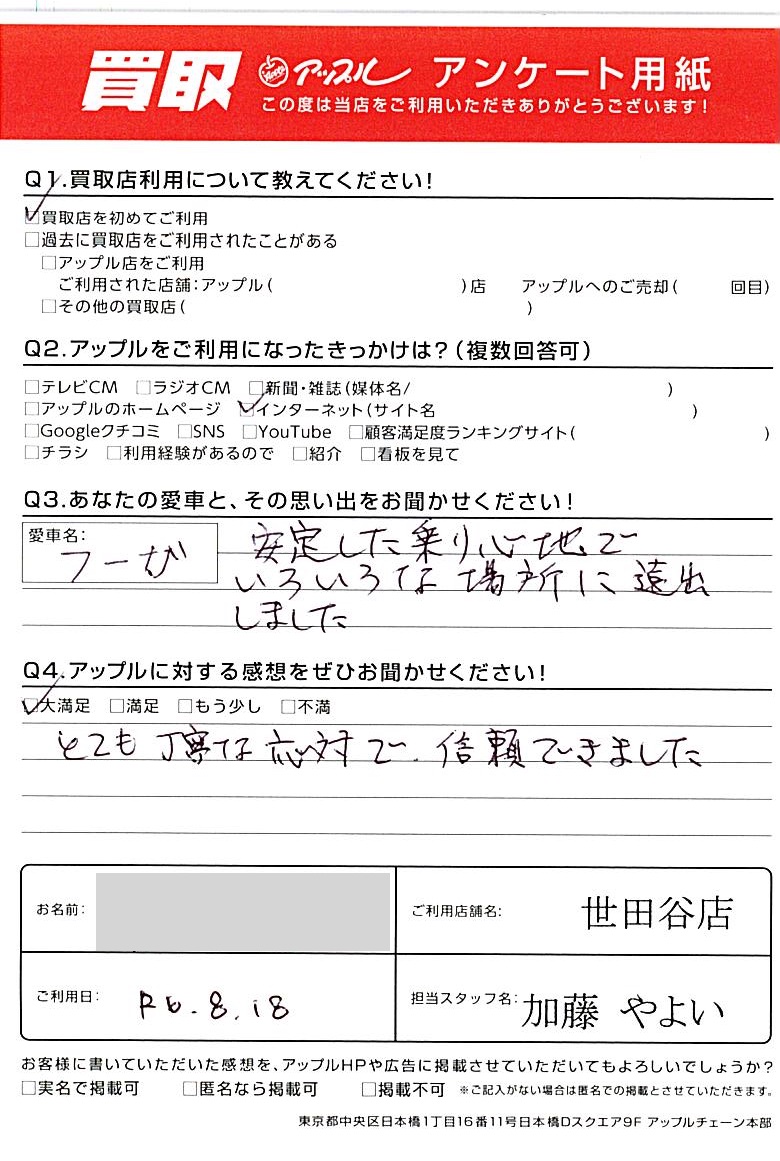 買取 アップル アンケート用紙
この度は当店をご利用いただきありがとうございます!
Q1.買取店利用について教えてください!
☑買取店を初めてご利用
□過去に買取店をご利用されたことがある
□アップル店をご利用
ご利用された店舗:アップル( )店 アップルへのご売却( 回目)
□その他の買取店( )
Q2.アップルをご利用になったきっかけは?(複数回答可)
□テレビCM □ラジオCM □新聞・雑誌(媒体名/ )
□アップルのホームページ ☑インターネット(サイト名 )
□Googleクチコミ □SNS □YouTube □顧客満足度ランキングサイト( )
□チラシ □利用経験があるので □紹介 □看板を見て
Q3.あなたの愛車と、その思い出をお聞かせください!
愛車名:
フーガ
安定した乗り心地で
いろいろな場所に遠出
しました
Q4.アップルに対する感想をぜひお聞かせください!
☑大満足 □満足 □もう少し □不満
とても丁寧な応対で、信頼できました
お名前: ご利用店舗名: 世田谷店
ご利用日: R6.8.18 担当スタッフ名: 加藤 やよい
お客様に書いていただいた感想を、アップルHPや広告に掲載させていただいてもよろしいでしょうか?
□実名で掲載可 □匿名なら掲載可 □掲載不可 ※ご記入がない場合は匿名での掲載とさせていただきます。
東京都中央区日本橋1丁目16番11号日本橋Dスクエア9F アップルチェーン本部